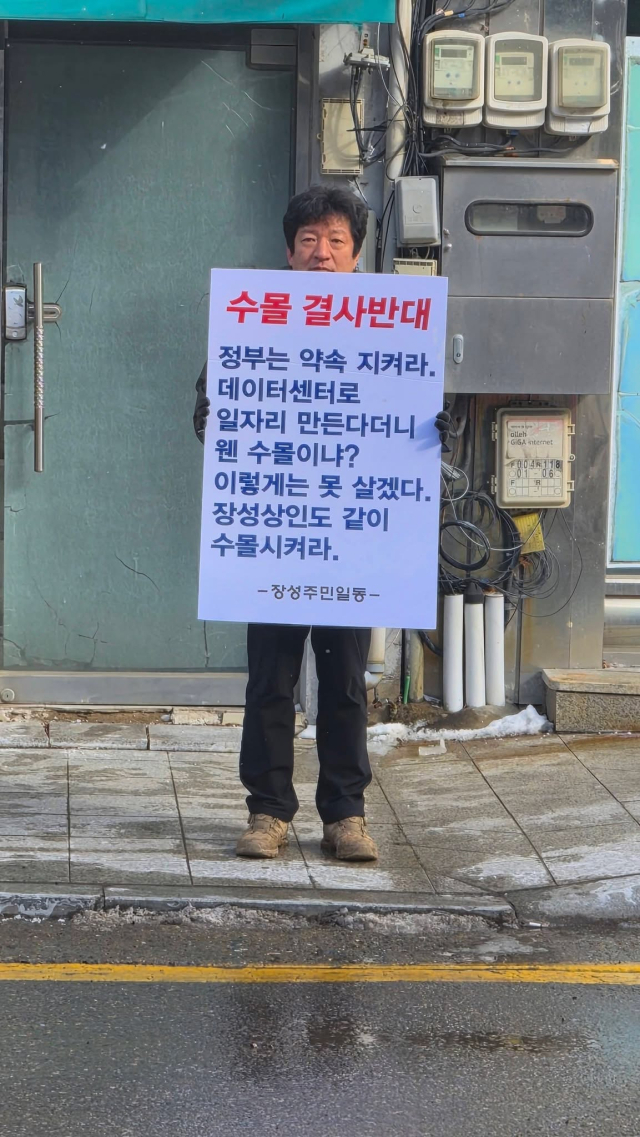 수몰 결사반대
정부는 약속 지켜라.
데이터센터로
일자리 만든다더니
웬 수몰이냐?
이렇게는 못 살겠다.
장성상인도 같이
수몰시켜라.
-장성주민일동-
olleh
GiGA internet